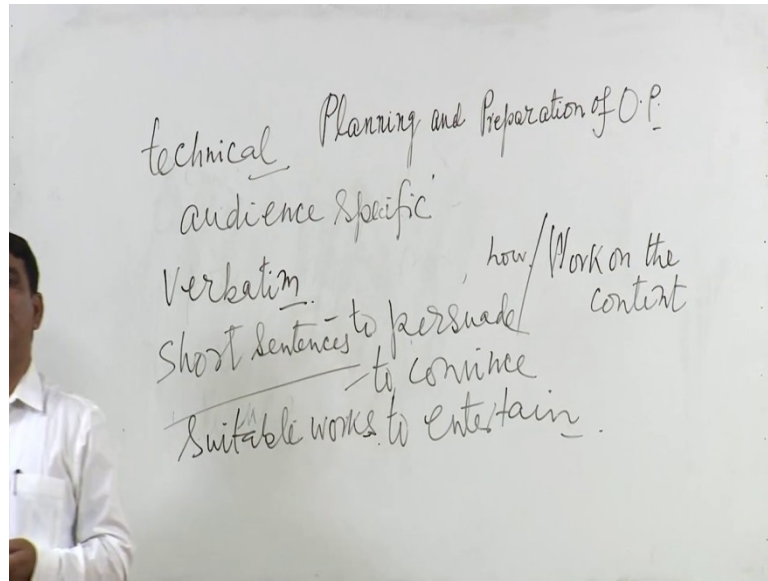 Planning and Preparation of O.P.
technical
audience specific
Verbatim
how / Work on the
content
Short sentences - to persuade
- to convince
Suitable works to entertain.